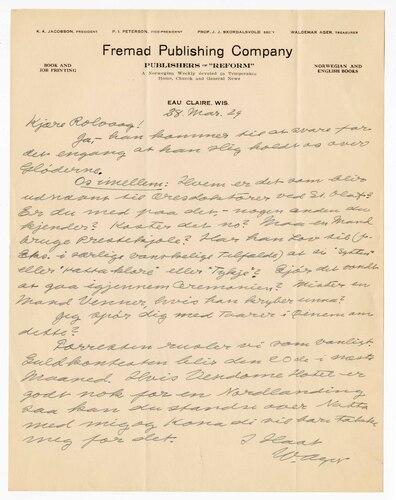 K. A. JACOBSON, PRESIDENT P. I. PETERSON, VICE-PRESIDENT PROF. J. J. SKORDALSVOLD SEC'Y WALDEMAR AGER, TREASURER
Fremad Publishing Company
BOOK AND JOB PRINTING
PUBLISHERS OF "REFORM"
A Norwegian Weekly devoted to Temperance
Home, Church and General News
NORWEGIAN AND ENGLISH BOOKS
EAU CLAIRE, WIS.
28. Mar. 29
Kjære Rolvaag!
Ja,- han kommer til at svare for
det engang at han slig holdt os over
Gløderne.
Os imellem: Hvem er det som blir
udnævnt til Æresdoktorer ved St. Olaf?
Er du med paa det,- nogen anden du
kjender? Koster det no? Maa en Mand
bruge Prestekjole? Har han Lov til (f.
Eks. i særlige vanskelige Tilfælde) at si "Fytten"
eller "Katta klore" eller "Tykje"? Gjør det vondt
at gaa igjennem Ceremonien? Mister en
Mand Venner, hvis han kryber unna?
Jeg spør dig med Taarer i Øinene om
dette?
Forresten rusler vi som vanligt.
Guldkontesten blir den 20de i næste
Maaned. Hvis Vendome Hotel er
godt nok for en Nordlænding
saa kan du standse over Natta
med mig og Kona di vil bare takke
mig for det.
I Hast
W. Ager